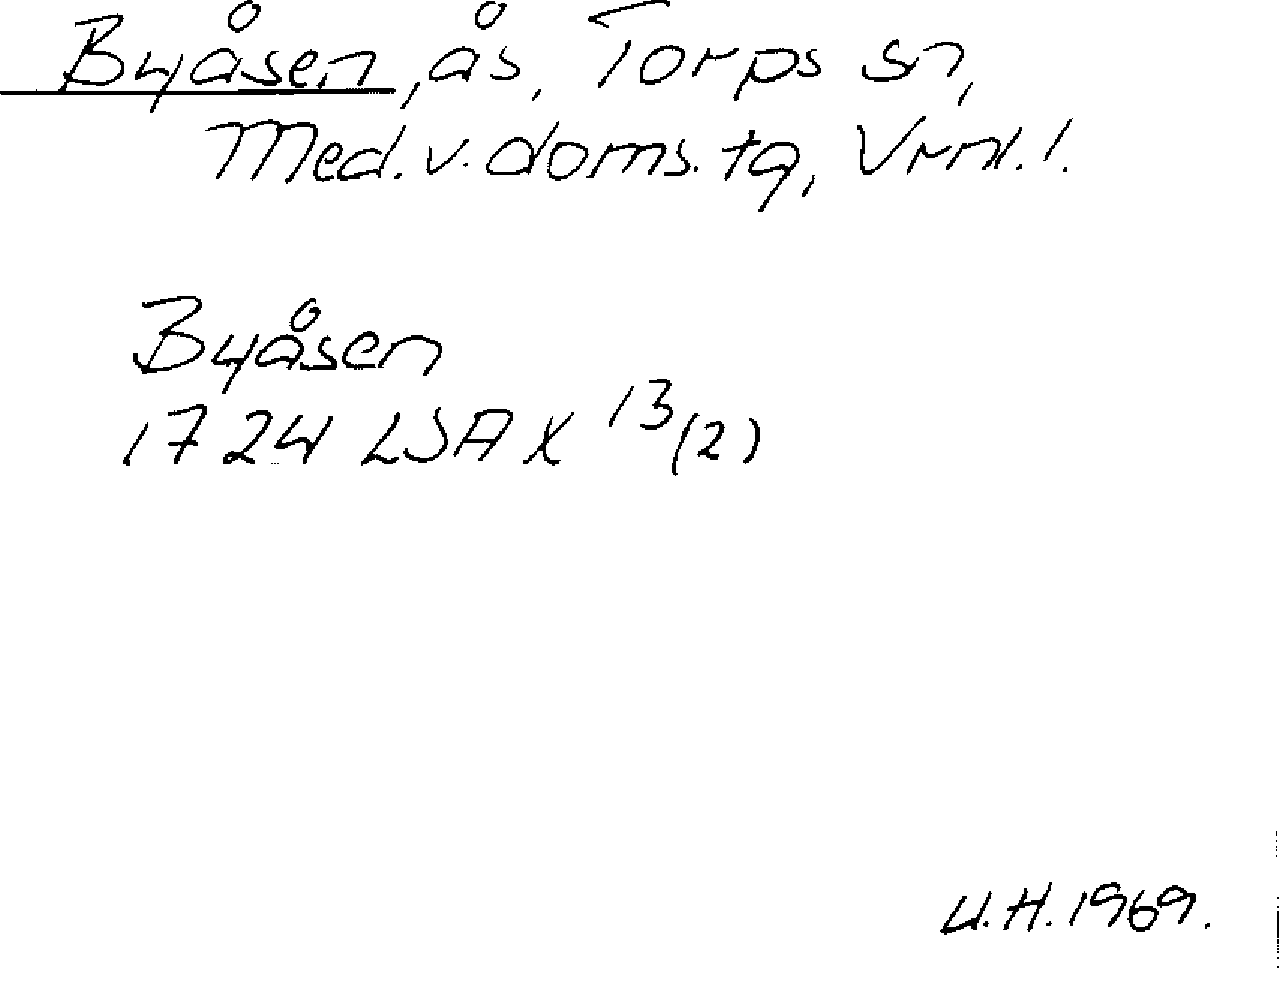 Byåsen, ås, Torps sn,
Med. v. doms. tg, Vrnl. l.
Byåsen
1724 LSA X 13/(2)
U.H. 1969.